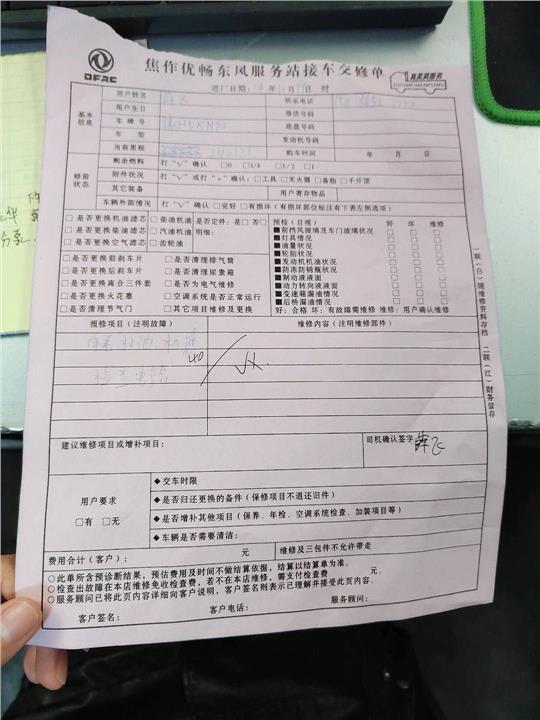 DFAC
焦作优畅东风服务站接车交修单
真 东风服务
进厂日期: 年 11月 日 时
基本信息
用户姓名 联系电话
用户生日 微信号码
车牌号 底盘号码
车型 发动机号码
当前里程 购车时间 年 月 日
修前状态
剩余燃料 打“√”确认 □0 □1/4 □1/2 □1
附件状况 打“√”或打“×”确认: □工具 □灭火器 □备胎 □千斤顶
其它装备 用户寄存物品
车辆外部情况 打“√”确认 □完好 □有损(有损部位标注右下表左侧选项)
□是否更换机油滤芯 □柴油机油 是否定件: □是 否□
□是否更换柴油滤芯 □汽油机油 明细:
□是否更换空气滤芯 □齿轮油
□是否更换前刹车片 □是否清理排气筒
□是否更换后刹车片 □是否清理尿素箱
□是否更换离合三件套 □是否为电气维修
□是否更换火花塞 □空调系统是否正常运行
□是否清理节气门 □其它项目维修及更换
预检(目视) 好 坏 维修
■前挡风玻璃及车门玻璃状况 □ □ □
■灯具情况 □ □ □
■油量状况 □ □ □
■轮胎状况 □ □ □
■发动机机油状况 □ □ □
■防冻防锈瓶状况 □ □ □
■制动液液面 □ □ □
■动力转向液液面 □ □ □
■变速箱漏油情况 □ □ □
■后桥漏油情况 □ □ □
好: 合格 坏: 有故障需维修 维修: 用户确认维修
报修项目(注明故障) 维修内容(注明维修部件)
建议维修项目或增补项目:
司机确认签字 薛飞
用户要求
□有 □无
◆交车时限
◆是否归还更换的备件(保修项目不退还旧件)
◆是否增补其他项目(保养、年检、空调系统检查、加装项目等)
◆车辆是否需要清洁:
费用合计(客户): 元 维修及三包件不允许带走
○此单所含预诊断结果,预估费用及时间不做结算依据,结算以结算单为准.
○检查出故障在本店维修免收检查费,若不在本店维修,需支付检查费 元.
○服务顾问已将此页内容详细向客户说明,客户签名则表示已理解并接受此页内容.
客户签名: 客户电话: 服务顾问:
一联(白)随维修资料存档 二联(红)财务留存